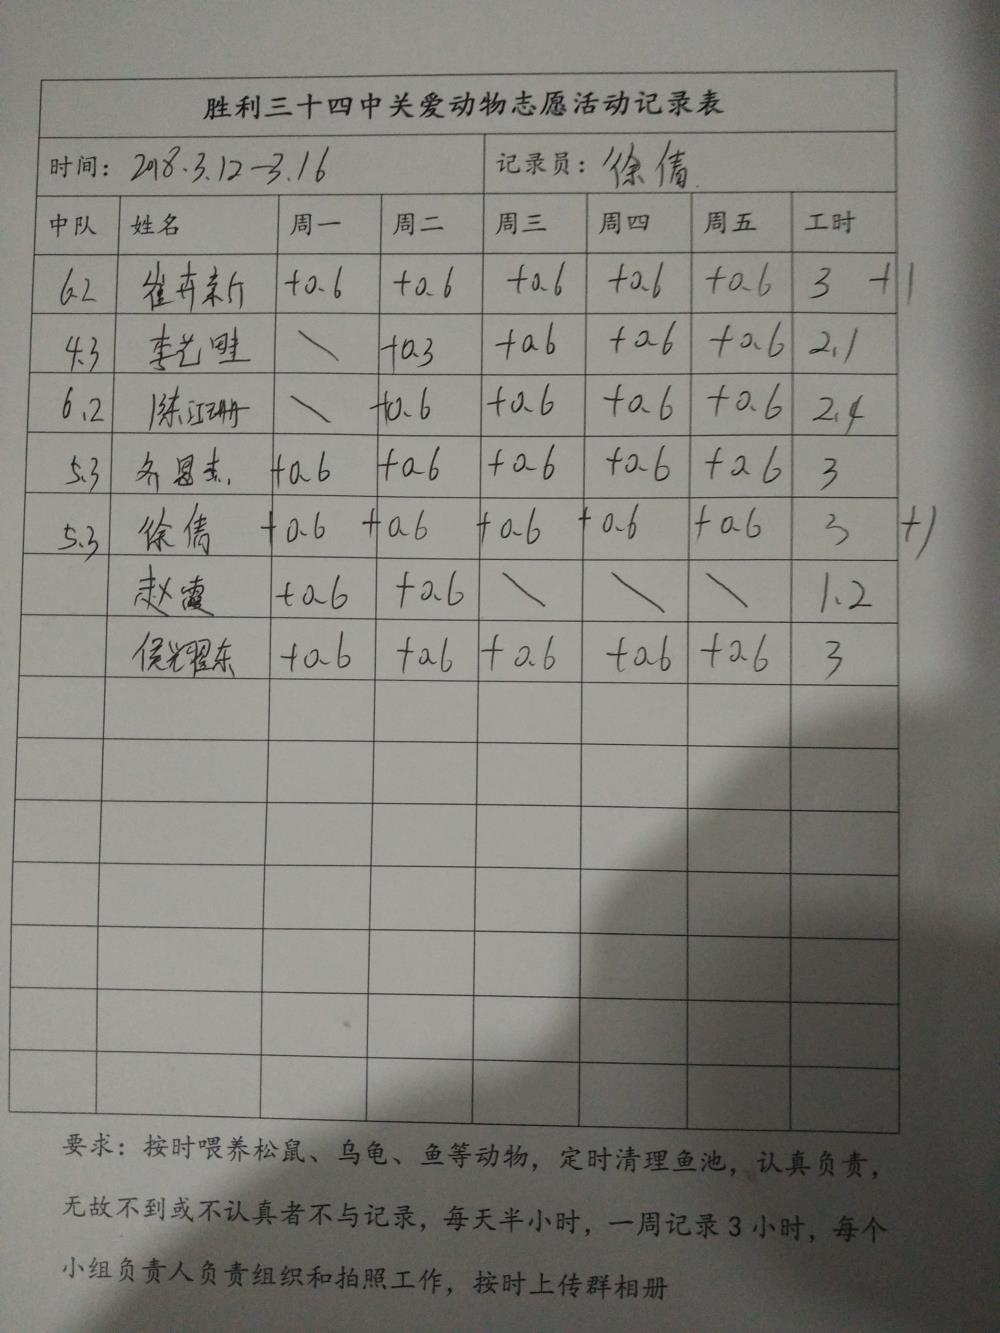 胜利三十四中关爱动物志愿活动记录表
时间：2018.3.12—3.16 记录员：徐倩
中队 姓名 周一 周二 周三 周四 周五 工时
6.2 崔卉 +0.6 +0.6 +0.6 +0.6 +0.6 3 +1
4.3 李艺 \ +0.3 +0.6 +0.6 +0.6 2.1
6.2 陈江珊 \ +0.6 +0.6 +0.6 +0.6 2.4
5.3 齐 +0.6 +0.6 +0.6 +0.6 +0.6 3
5.3 徐倩 +0.6 +0.6 +0.6 +0.6 +0.6 3 +1
赵霞 +0.6 +0.6 \ \ \ 1.2
侯光耀东 +0.6 +0.6 +0.6 +0.6 +0.6 3
要求：按时喂养松鼠、乌龟、鱼等动物，定时清理鱼池，认真负责，
无故不到或不认真者不与记录，每天半小时，一周记录3小时，每个
小组负责人负责组织和拍照工作，按时上传群相册